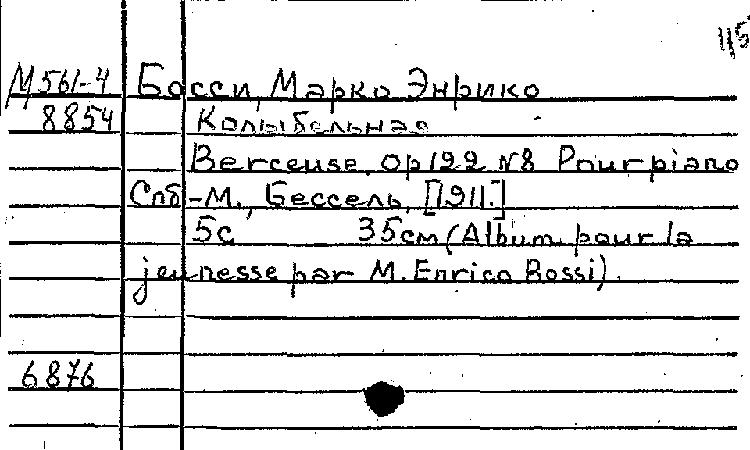 115
М561-4 Босси, Марко Энрико
8854 Колыбельная
Berceuse. op 122 N8 Pour piano
Спб-М., Бессель, [1911.]
5с 35см (Album pour la
jeunesse par M. Enrico Bossi).
6876